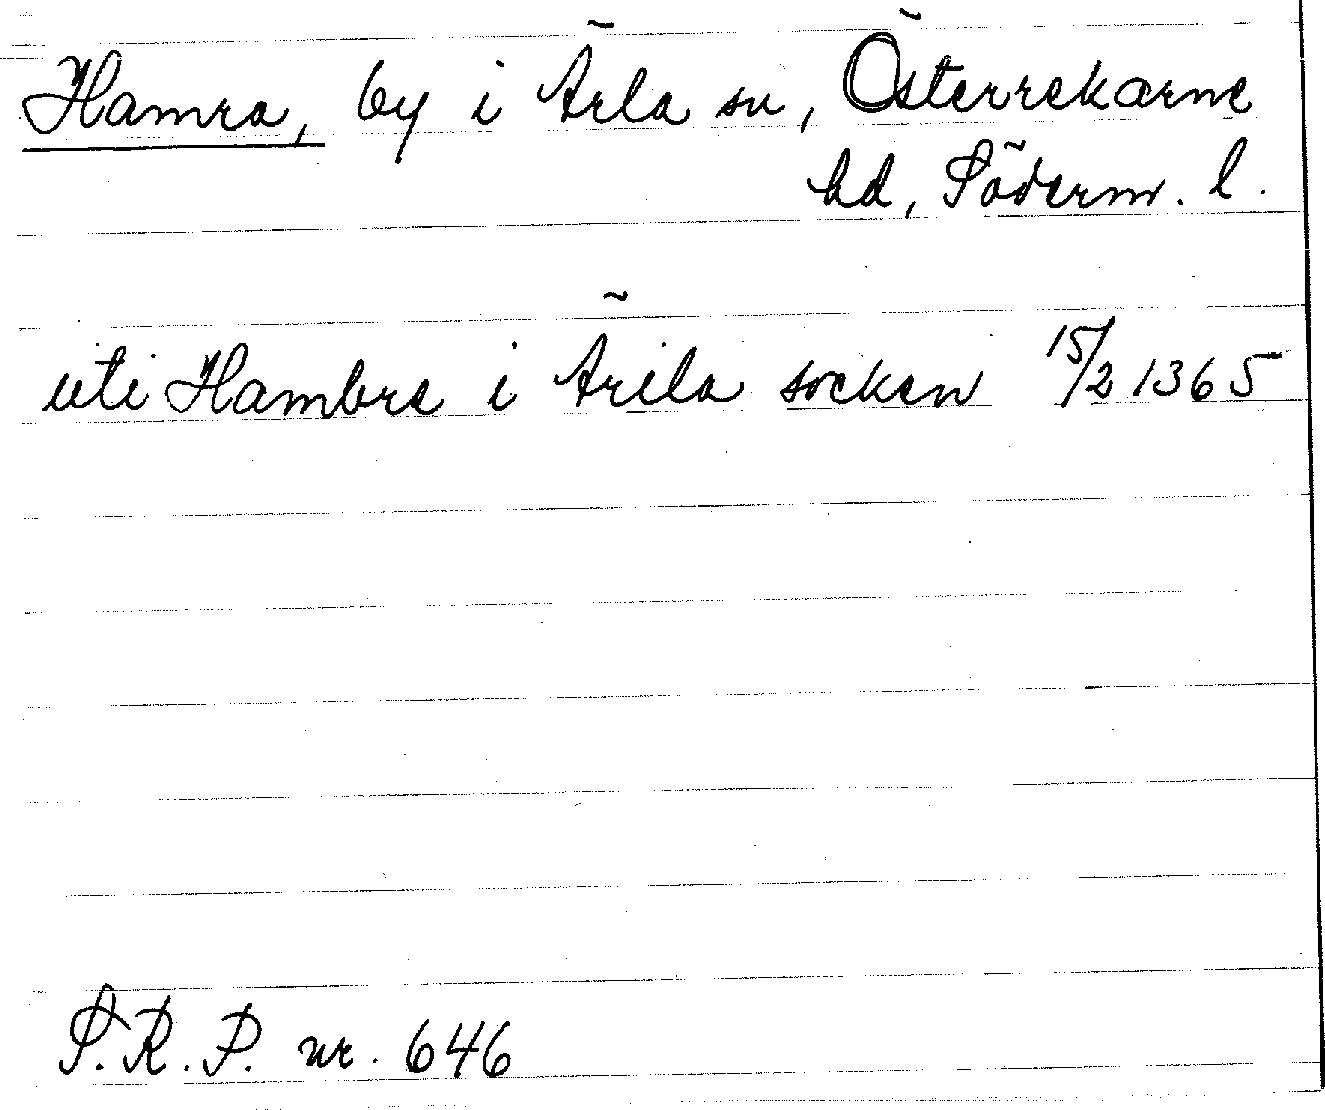 Hamra, by i Ärla sn, Österrekarne
hd, Söderm. l.
uti Hambre i Ärila socken 15/2 1365
S.R.P. nr. 646